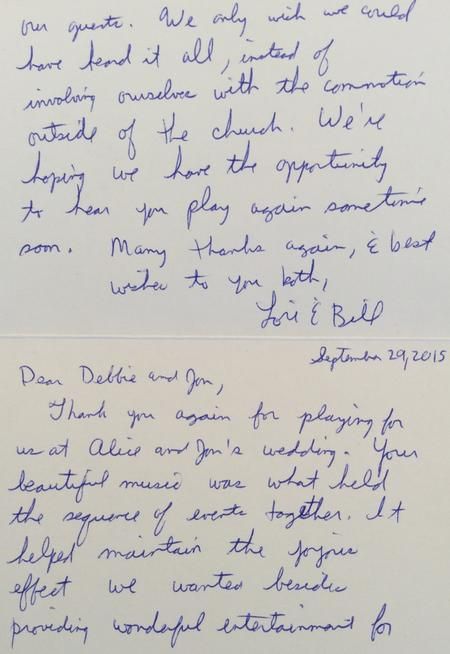 our guests. We only wish we could
have heard it all, instead of
involving ourselves with the commotion
outside of the church. We're
hoping we have the opportunity
to hear you play again sometime
soon. Many thanks again, & best
wishes to you both,
Lori & Bill
September 29, 2015
Dear Debbie and Jon,
Thank you again for playing for
us at Alice and Jon's wedding. Your
beautiful music was what held
the sequence of events together. It
helped maintain the joyous
effect we wanted besides
providing wonderful entertainment for